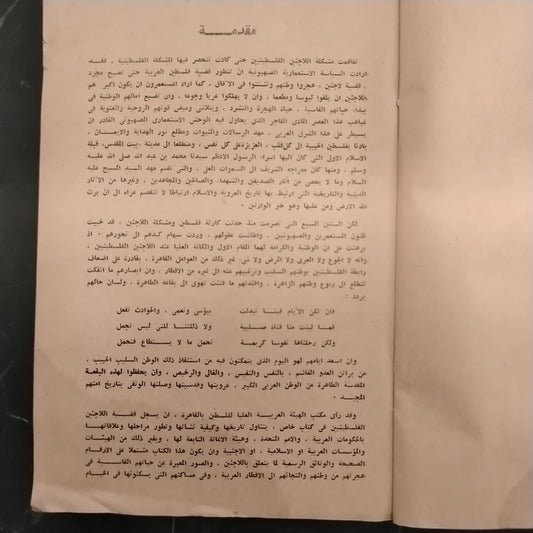 مقدمــــة
تفاقمت مشكلة اللاجئين الفلسطينيين حتى كادت تنحصر فيها المشكلة الفلسطينية ، فقد
ارادت السياسة الاستعمارية الصهيونية ان تتطور قضية فلسطين العربية حتى تصبح مجرد
قضية لاجئين ، هجروا وطنهم وتشتتوا في الآفاق ، كما اراد المستعمرون ان يكون اكبر هم
اللاجئين ان يلقوا لبوسا ومطعما ، وان لا يهلكوا عريا وجوعا ، وان تضيع امالهم الوطنية في
بيداء حياتهم القاسية ، حياة الهجرة والتشرد ، ويتلاشى وميض قوتهم الروحية والمعنوية في
غياهب هذا العصر المادي الفاجر الذي يحاول فيه الوحش الاستعماري الصهيوني الغادر ان
يسيطر على هذا الشرق العربي ، مهد الرسالات والنبوات ومطلع نور الهداية والايمان ،
بادئا بفلسطين الحبيبة الى كل قلب ، العزيزة على كل نفس ، ومنطلقا الى مدينة ، بيت المقدس، قبلة
الاسلام الاولى التي كان اليها اسراء الرسول الاعظم سيدنا محمد بن عبد الله صلى الله عليه
وسلم ، ومنها كان معراجه الشريف الى السموات العلى ، والتي تضم مهد السيد المسيح عليه
السلام وما لا يحصى من آثار الصديقين والشهداء والصالحين والمجاهدين ، وغيرها من الآثار
الدينية والتاريخية التي ارتبط بها تاريخ العروبة والاسلام ارتباطا لا تنفصم عراه الى ان يرث
الله الارض ومن عليها وهو خير الوارثين .
لكن السنين السبع التي تصرمت منذ حدثت كارثة فلسطين ومشكلة اللاجئين ، قد خيبت
ظنون المستعمرين والصهيونيين ، واطاشت عقولهم ، وردت سهام كيدهم الى نحورهم . اذ
برهنت على ان الوطنية والكرامة لهما المقام الاول والمكانة العليا عند اللاجئين الفلسطينيين ،
وانه لا الجوع ولا العري ولا المرض ولا شيء غير ذلك من العوامل القاهرة ، بقادرة على اضعاف
رابطة الفلسطينيين بوطنهم السليب وترغيبهم عنه الى غيره من الاقطار ، وان ابصارهم ما انفكت
تتطلع الى ربوع وطنهم الزاهرة ، وافئدتهم ما فتئت تهوى الى بقاعه الطاهرة ، ولسان حالهم
يردد :
فان تكن الايام فينا تبدلت ببؤسى ونعمى ، والحوادث تفعل
فما لينت منا قناة صليبة ولا ذللتنا للتى ليس تجمل
ولكن رحلناها نفوسا كريمة تحمل ما لا يستطاع فتحمل
وان اسعد ايامهم لهو اليوم الذي يتمكنون فيه من استنقاذ ذلك الوطن السليب الحبيب ،
من براثن العدو الغاشم ، بالنفس والنفيس ، والغال والرخيص ، وان يحفظوا لهذه البقعة
المقدسة الطاهرة من الوطن العربي الكبير ، عروبتها وقدسيتها وصلتها الوثقى بتاريخ امتهم
المجيد .
وقد رأى مكتب الهيئة العربية العليا لفلسطين بالقاهرة ، ان يسجل قضية اللاجئين
الفلسطينيين في كتاب خاص ، يتناول تاريخها وكيفية نشأتها وتطور مراحلها وعلاقاتها
بالحكومات العربية ، والامم المتحدة ، وهيئة الاغاثة التابعة لها ، وبغير ذلك من الهيئات
والمؤسسات العربية او الاسلامية ، او الاجنبية وان يكون هذا الكتاب مشتملا على الارقام
الصحيحة والوثائق الرسمية لما يتعلق باللاجئين ، والصور المعبرة عن حياتهم القاسية في
هجرتهم من وطنهم والتجائهم الى الاقطار العربية ، وفي مساكنهم التي يسكنونها في الخيام